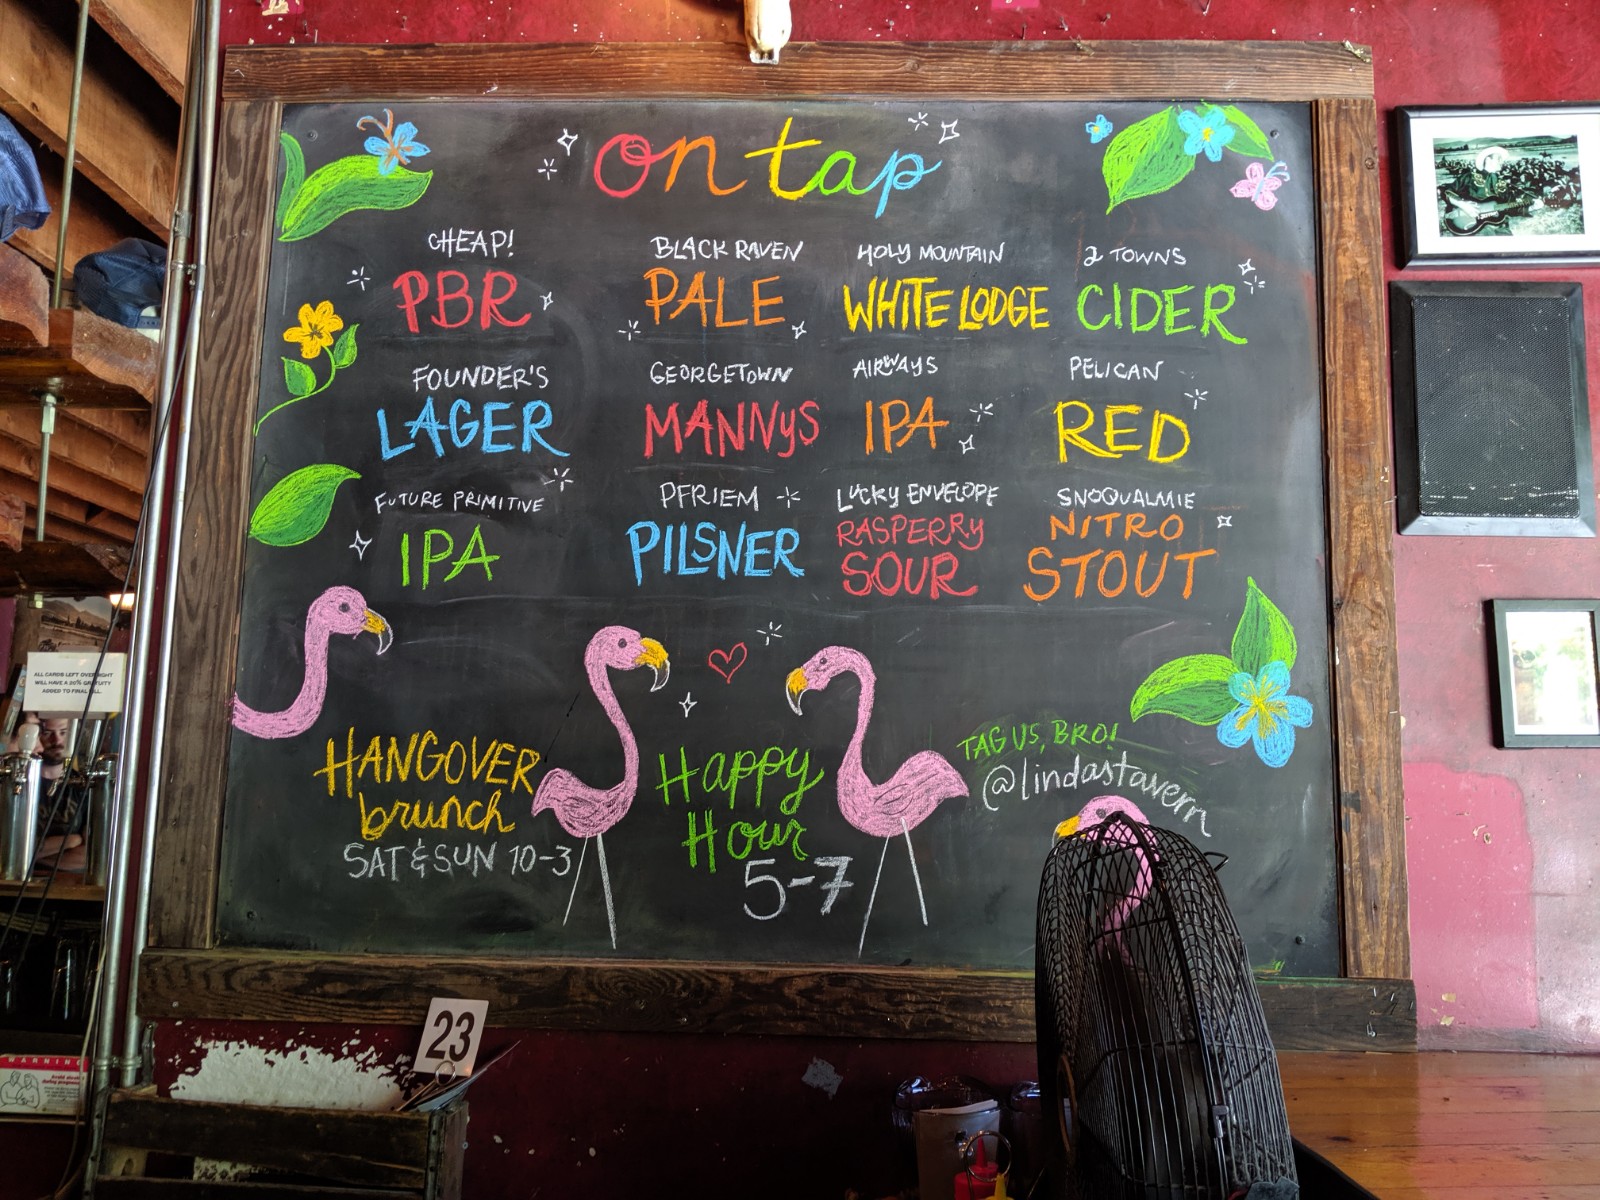 on tap
CHEAP!
PBR
BLACK RAVEN
PALE
HOLY MOUNTAIN
WHITE LODGE
2 TOWNS
CIDER
FOUNDER'S
LAGER
GEORGETOWN
MANNYS
AIRWAYS
IPA
PELICAN
RED
FUTURE PRIMITIVE
IPA
PFRIEM
PILSNER
LUCKY ENVELOPE
RASPERRY
SOUR
SNOQUALMIE
NITRO
STOUT
HANGOVER
brunch
SAT & SUN 10-3
Happy
Hour
5-7
TAG US, BRO!
@lindastavern
ALL CARDS LEFT OVERNIGHT
WILL HAVE A 20% GRATUITY
ADDED TO FINAL BILL.
23
WARNING